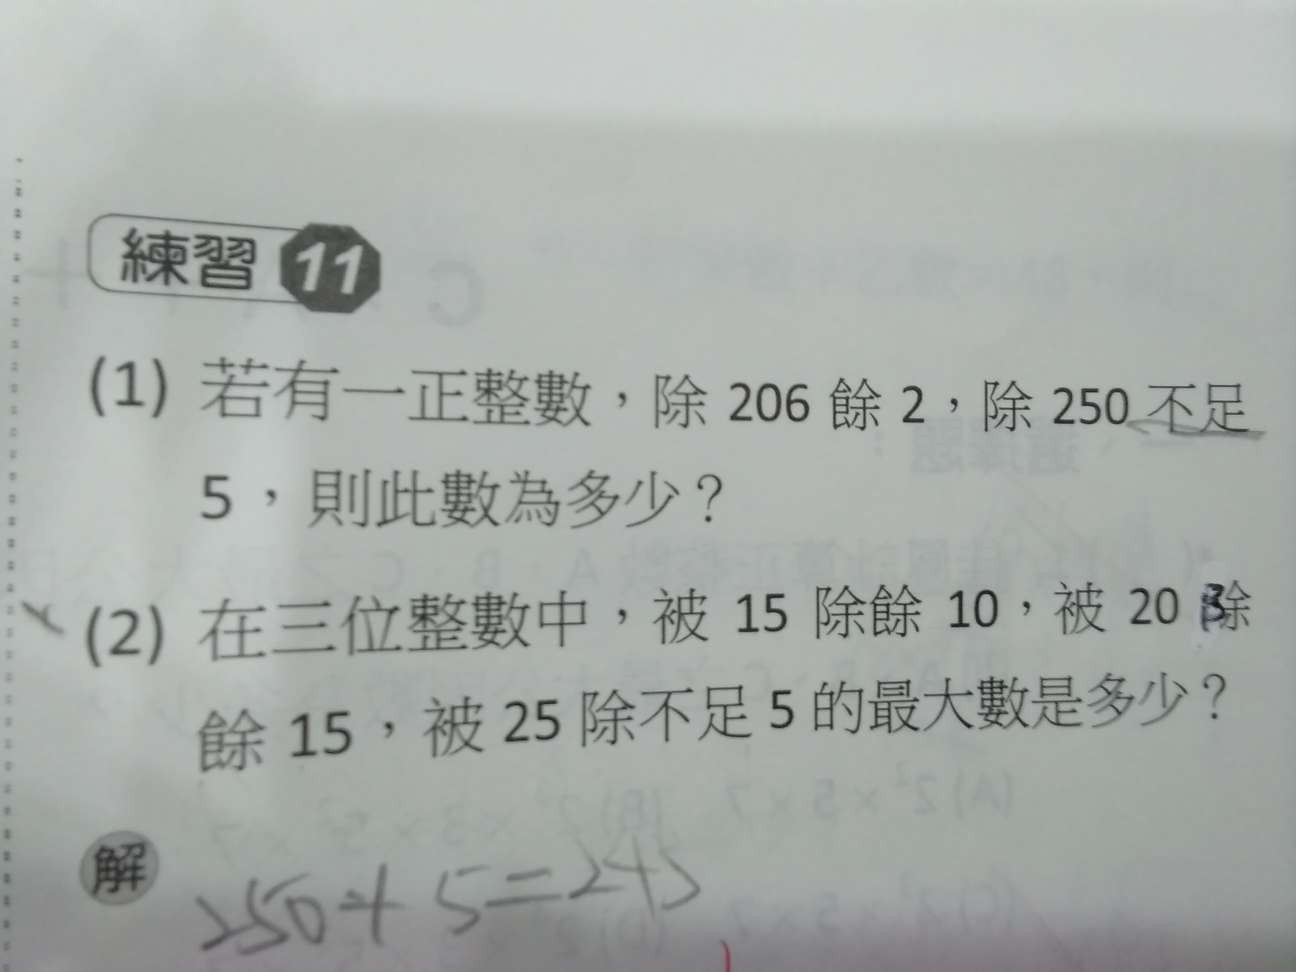 練習 11
(1) 若有一正整數，除 206 餘 2，除 250 不足
5，則此數為多少？
(2) 在三位整數中，被 15 除餘 10，被 20 除
餘 15，被 25 除不足 5 的最大數是多少？
解
250+5=245